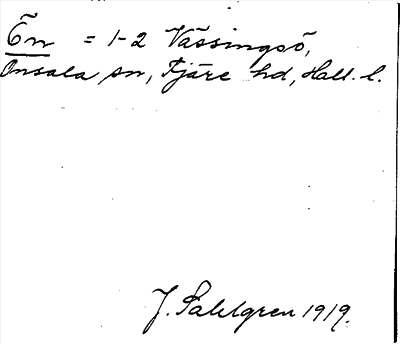 Ön = 1-2 Vässingsö,
Onsala sn, Fjäre hd, Hall. l.
J. Sahlgren 1919.